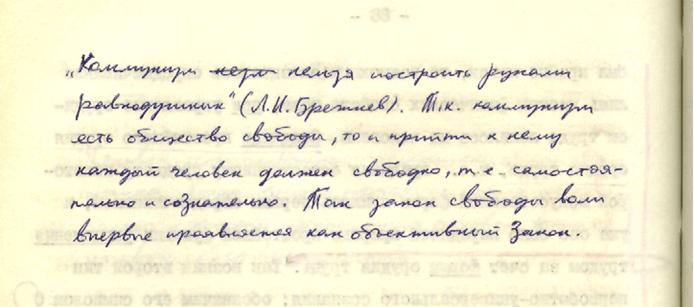 „Коммунизм нельзя построить руками
равнодушных" (Л.И.Брежнев). Т.к. коммунизм
есть общество свободы, то и прийти к нему
каждый человек должен свободно, т.е. самостоя-
тельно и сознательно. Так закон свободы воли
впервые проявляется как объективный Закон.